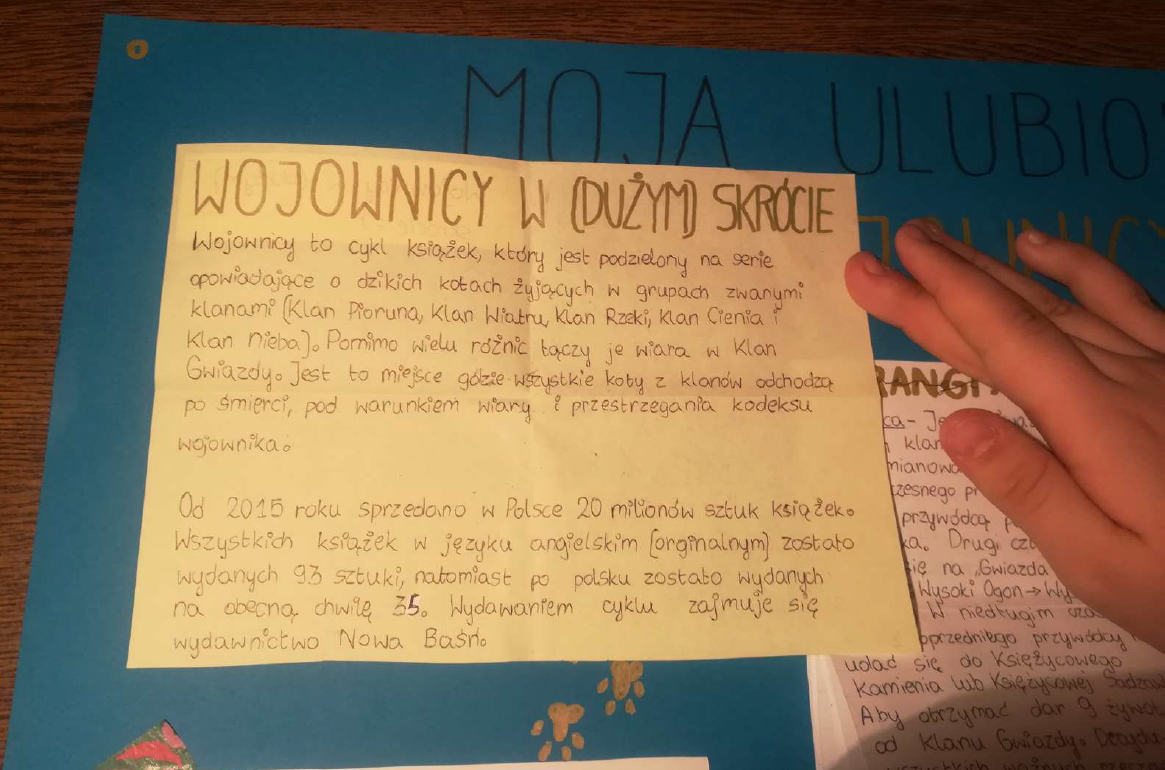 MOJA ULUBIO
WOJOWNICY W (DUŻYM) SKRÓCIE
Wojownicy to cykl książek, który jest podzielony na serie
opowiadające o dzikich kotach żyjących w grupach zwanymi
klanami (Klan Pioruna, Klan Wiatru, Klan Rzeki, Klan Cienia i
Klan Nieba). Pomimo wielu różnic łączy je wiara w Klan
Gwiazdy. Jest to miejsce gdzie wszystkie koty z klanów odchodzą
po śmierci, pod warunkiem wiary i przestrzegania kodeksu
wojownika.
Od 2015 roku sprzedano w Polsce 20 milionów sztuk książek.
Wszystkich książek w języku angielskim (orginalnym) zostało
wydanych 93 sztuki, natomiast po polsku zostało wydanych
na obecną chwilę 35. Wydawaniem cyklu zajmuje się
wydawnictwo Nowa Baśń.
RANGI
ca - Je
klan
mianowa
zesnego pr
przywódcą p
ka. Drugi cz
się na „Gwiazda
Wysoki Ogon → Wy
W niedługim cza
oprzedniego przywódcy
udać się do Księżycowego
Kamienia lub Księżycowej Sadzaw
Aby otrzymać dar 9 żywot
od Klanu Gwiazdy. Decyduj
wszystkich ważnych rzecza